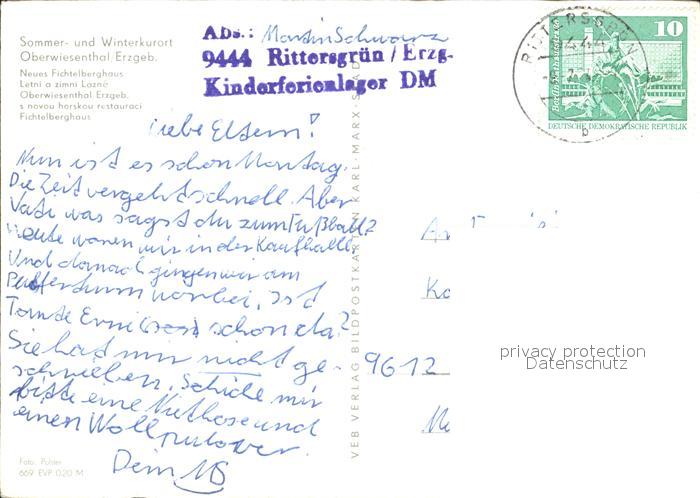 Sommer- und Winterkurort
Oberwiesenthal/Erzgeb.
Neues Fichtelberghaus
Letni a zimni Lazně
Oberwiesenthal Erzgeb.
s novou horskou restaurací
Fichtelberghaus
Abs.: Martin Schwarz
9444 Rittersgrün / Erzg.
Kinderferienlager DM
RITTERSGRÜN
9444
b
10
Berlin, Rathausstraße
DEUTSCHE DEMOKRATISCHE REPUBLIK
Liebe Eltern!
Nun ist es schon Montag.
Die Zeit vergeht schnell. Aber
Vati was sagst du zum Fußball?
Heute waren wir in der Kaufhalle
Und danach gingen wir am
vorbei, ist
Tante Erni schon da?
Sie hat mir nicht ge-
schrieben. Schicke mir
bitte eine Niethose und
einen Wollpullover.
Dein MS
VEB VERLAG BILDPOSTKARTEN KARL-MARX-STADT
An
9612
privacy protection
Datenschutz
Foto: Polster
669 EVP 0.20 M